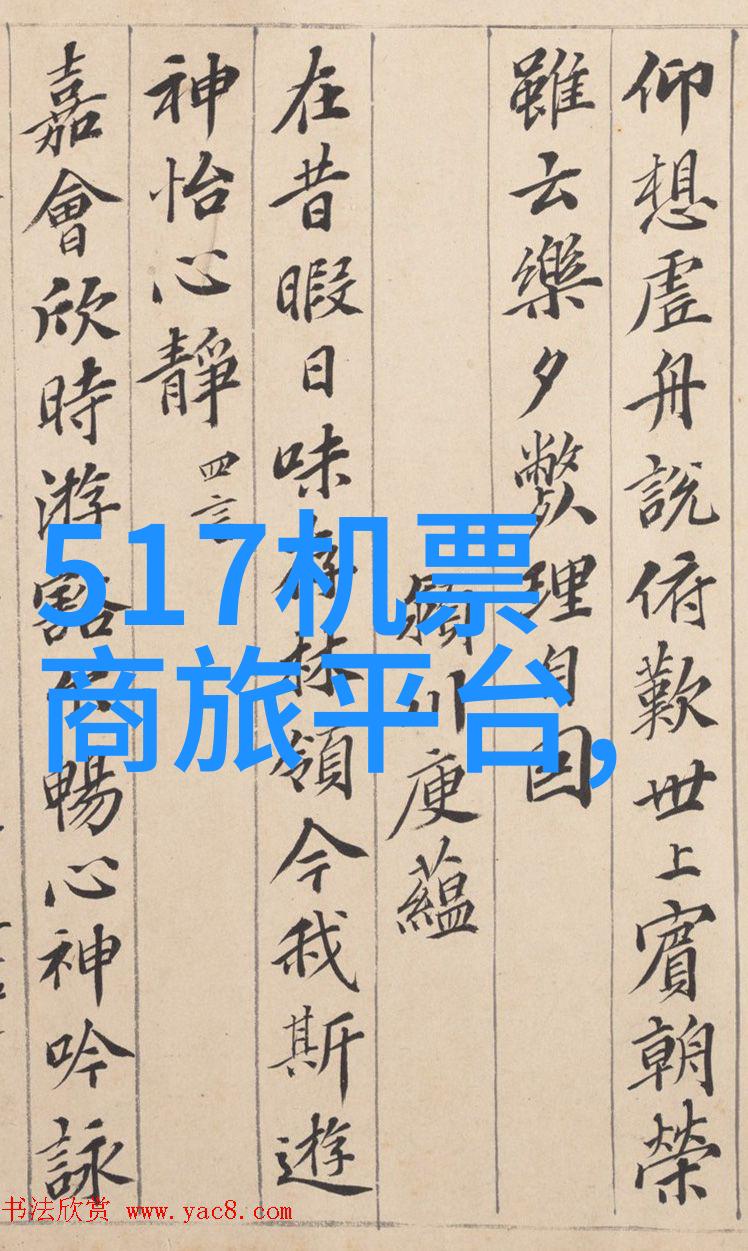 仰想虛舟說俯歎世上賓朝榮
雖云樂夕獘理自因
潁川庾蘊
在昔暇日味存林領今我斯遊
神怡心靜 四言
嘉會欣時游豁尔暢心神吟詠
517机票
商旅平台,
书法欣赏 www.yac8.com